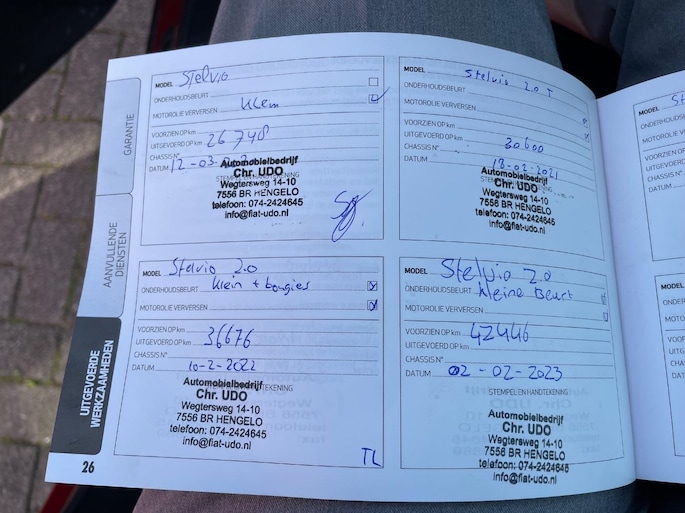 GARANTIE
AANVULLENDE
DIENSTEN
UITGEVOERDE
WERKZAAMHEDEN
26
MODEL Stelvio
ONDERHOUDSBEURT
MOTOROLIE VERVERSEN Klein
VOORZIEN OP km
UITGEVOERD OP km 26748
CHASSIS N°
DATUM 12-03-
STEMPEL EN HANDTEKENING
Automobielbedrijf
Chr. UDO
Wegtersweg 14-10
7556 BR HENGELO
telefoon: 074-2424645
info@fiat-udo.nl
MODEL Stelvio 2.0 T
ONDERHOUDSBEURT
MOTOROLIE VERVERSEN
VOORZIEN OP km
UITGEVOERD OP km 30600
CHASSIS N°
DATUM 18-02-2021
Automobielbedrijf
Chr. UDO
Wegtersweg 14-10
7556 BR HENGELO
telefoon: 074-2424645
info@fiat-udo.nl
MODEL Stelvio 2.0
ONDERHOUDSBEURT Klein + bougies
MOTOROLIE VERVERSEN
VOORZIEN OP km
UITGEVOERD OP km 36676
CHASSIS N°
DATUM 10-2-2022
Automobielbedrijf
Chr. UDO
Wegtersweg 14-10
7556 BR HENGELO
telefoon: 074-2424645
info@fiat-udo.nl
TL
MODEL Stelvio 2.0
ONDERHOUDSBEURT Kleine Beurt
MOTOROLIE VERVERSEN
VOORZIEN OP km
UITGEVOERD OP km 42446
CHASSIS N°
DATUM 02-02-2023
STEMPEL EN HANDTEKENING
Automobielbedrijf
Chr. UDO
Wegtersweg 14-10
7556 BR HENGELO
telefoon: 074-2424645
info@fiat-udo.nl
MODEL
ONDERHOUDSBEURT
MOTOROLIE VERVERS
VOORZIEN OP km
UITGEVOERD OP
CHASSIS N°
DATUM
MODEL
ONDERHOUDS
MOTOROLIE
VOORZIEN
UITGEVOER
CHASSIS N°
DATUM